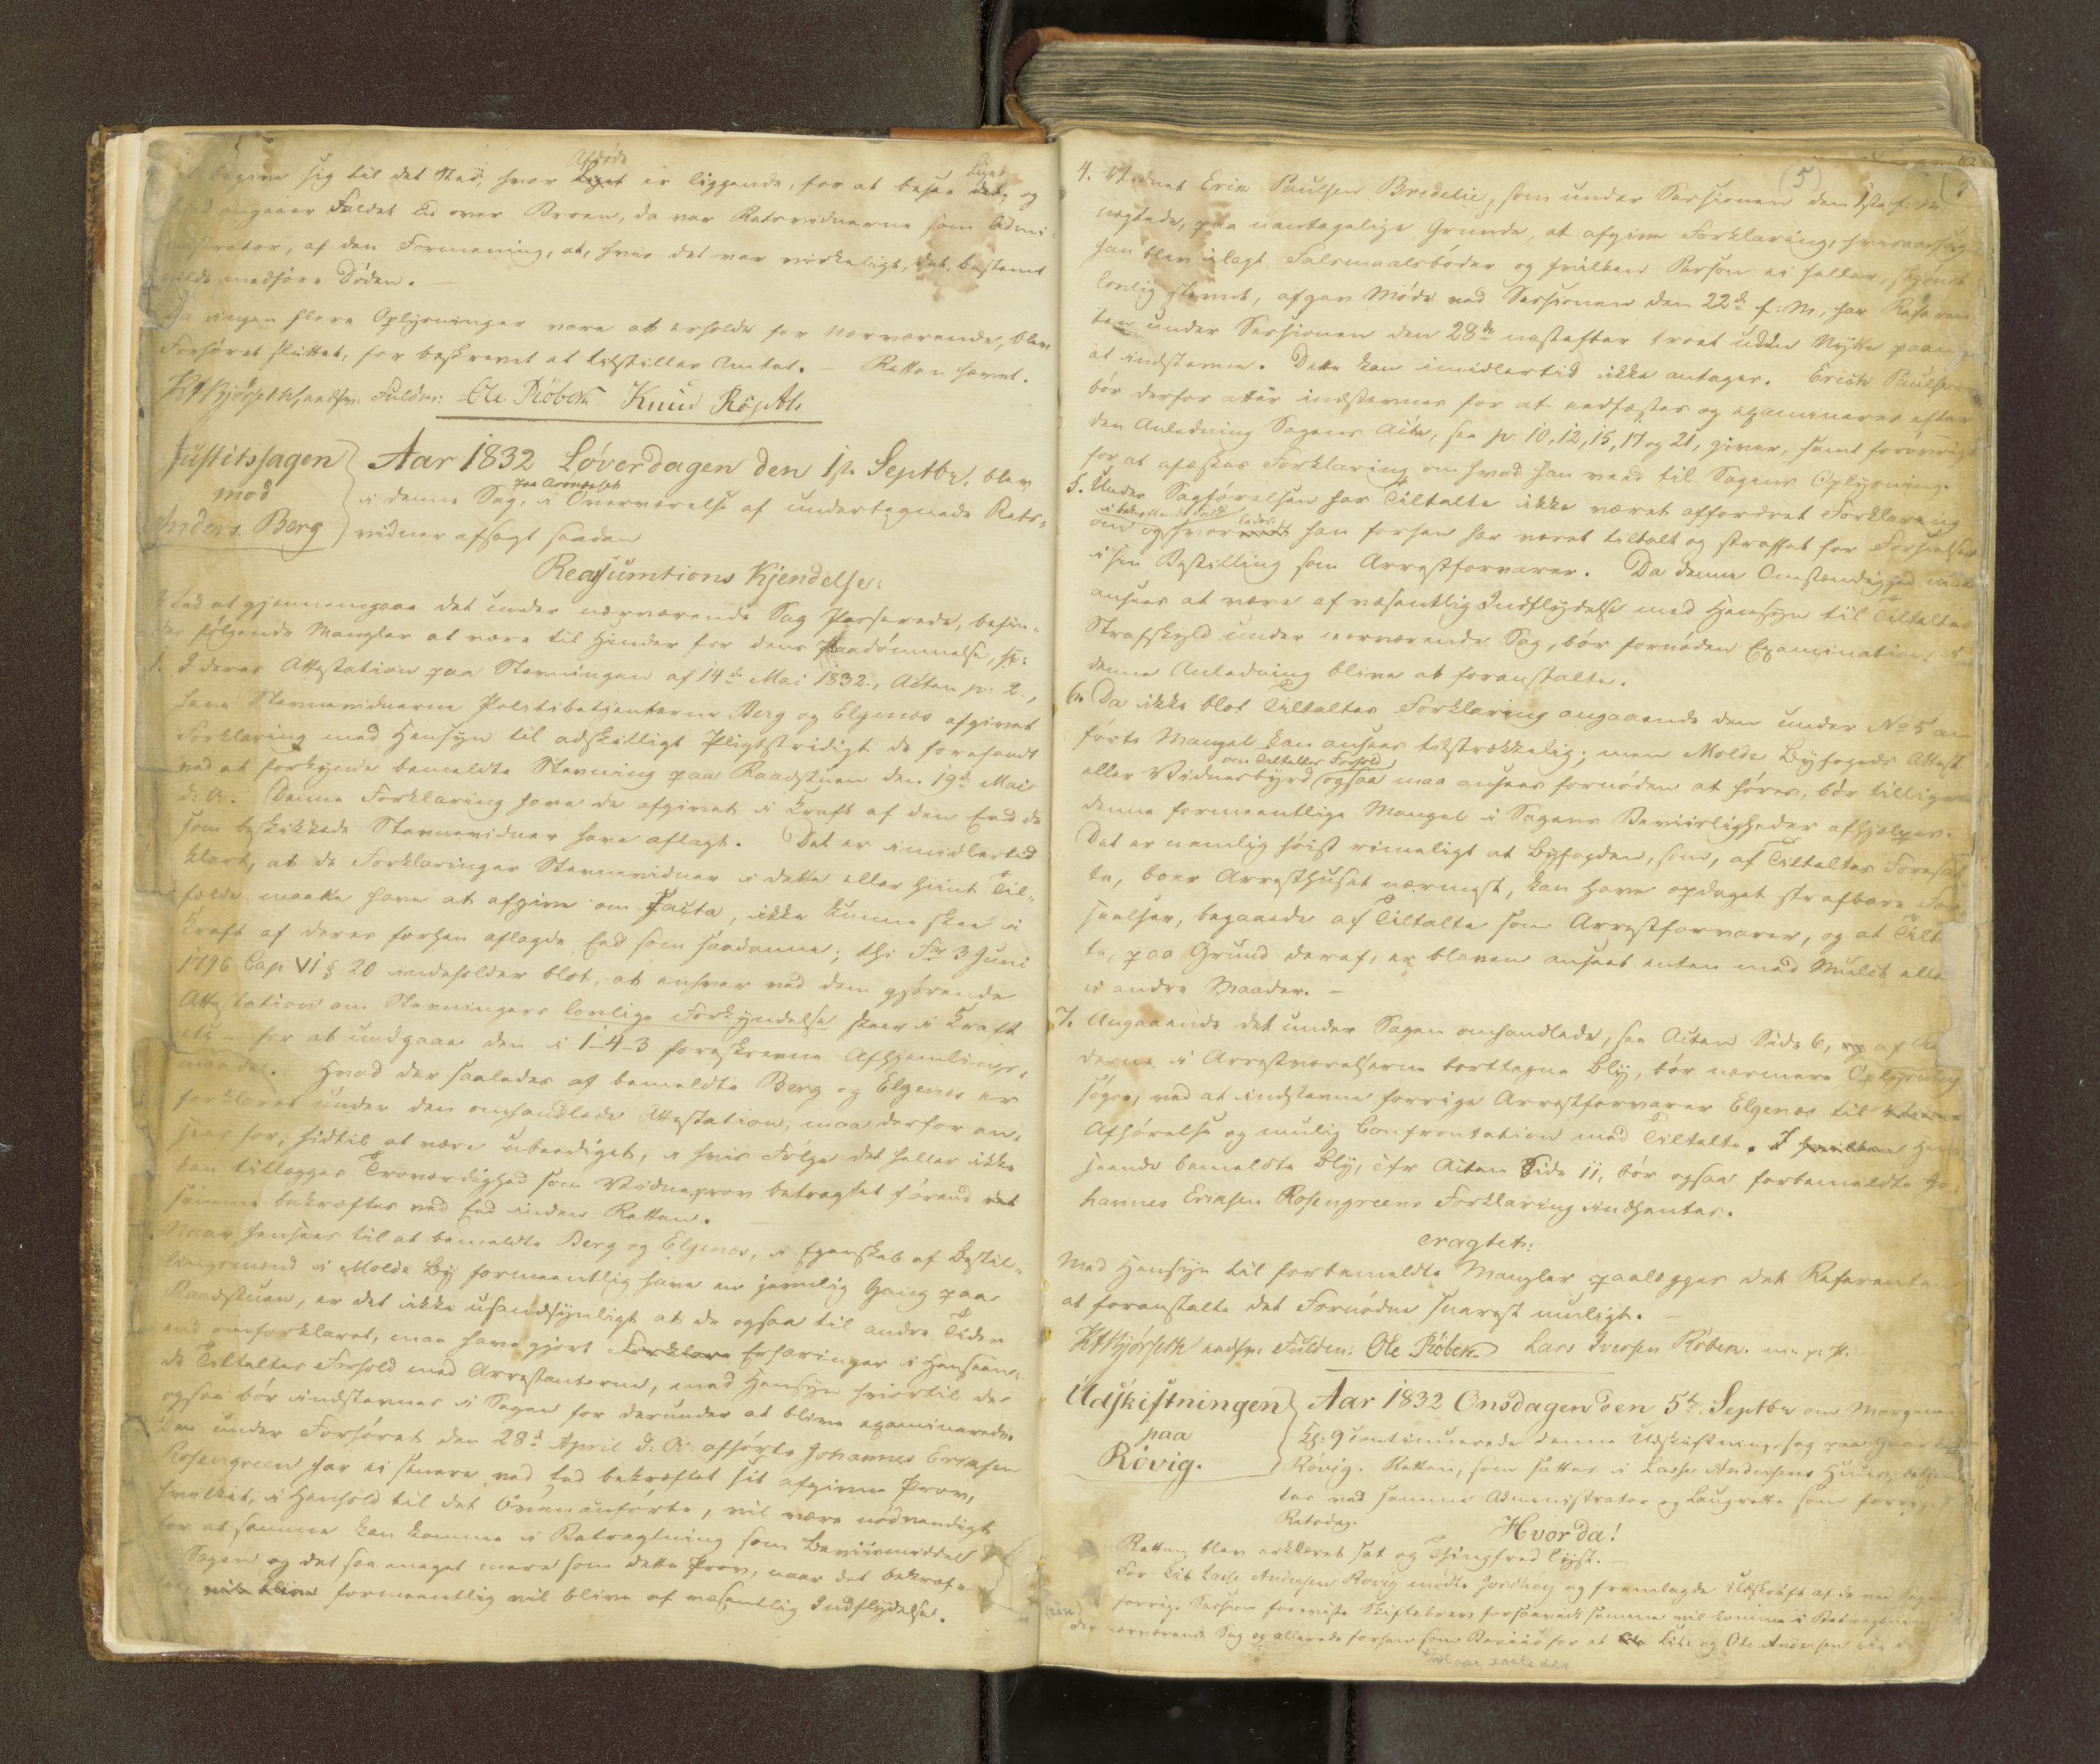 begive sig til det Sted, hvor Afdøde Liget er liggende, for at besee Liget det, og
angaaer Faldet ud over Broen, da var Retsvidnerne som Admi-
nistrator, af den Formening, at, hvis det var virkeligt, det bestemt
vilde medføre Døden. —
Da ingen flere Oplysninger vare at erholde for nærværende, blev
Forhøret sluttet, for beskrevet at tilstilles Amtet. — Retten hævet.
Fuldm: Ole Röbek Knud
Justitssagen
mod
Anders Berg
Aar 1832 Løverdagen den 1ste Septbr, blev
i denne Sag, paa i Overværelse af undertegnede Rets-
vidner afsagt saadan
Reassumtions Kjendelse:
Ved at gjennemgaae det under nærværende Sag Passerede, befin-
des følgende Mangler at være til Hinder for dens Paadømmelse, sc:
1. I deres Attestation paa Stevningen af 14de Mai 1832, Acten p: 2,
have Stevnevidnerne Politibetjenterne Berg og Elgenes afgivet
Forklaring med Hensyn til adskilligt Pligtstridigt de forefandt
ved at forkynde bemeldte Stevning paa Raadstuen den 19de Mai
d: A. Denne Forklaring have de afgivet i Kraft af den Eed de
som beskikkede Stevnevidner have aflagt. Det er imidlertid
klart, at de Forklaringer Stevnevidner i dette eller hiint Til-
fælde maatte have at afgive om Facta, ikke kunne skee i
Kraft af deres forhen aflagde Eed som saadanne; thi Fr 3 Juni
1796 Cap VI § 20 indeholder blot, at enhver ved dem gjørende
Attestation om Stevningers lovlige Forkyndelse skeer i Kraft
etc — for at undgaae den i 1-4-3 foreskrevne Afhjemlings-
maade. Hvad der saaledes af bemeldte Berg og Elgenes er
forklaret under den omhandlede Attestation, maa derfor an-
sees for, hidtil at være ubeediget, i hvis Følge det heller ikke
kan tillægges Troværdighed som Vidneprov betragtet førend det
samme bekræftes ved Eed inden Retten.
Naar hensees til at bemeldte Berg og Elgenes, i Egenskab af Bestil-
lingsmænd i Molde By formeentlig have en jevnlig Gang paa
Raadstuen, er det ikke usandsynligt at de ogsaa til andre Tider
end omforklaret, maa have gjort Forklare Erfaringer i Henseen-
de Tiltaltes Forhold med Arrestanterne, med Hensyn hvortil de
ogsaa bør indstevnes i Sagen for derunder at blive examinerede.
Den under Forhøret den 28de April d: A: afhørte Johannes Eriksen
Rosengreen har ei senere ved Eed bekræftet sit afgivne Prov,
hvilket, i Henhold til det Ovenanførte, vil være nødvendigt
for at samme kan komme i Betragtning som Beviismiddel
Sagen og det saa meget mere som dette Prov, naar det bekræf-
tes, vil blive formeentlig vil blive af væsentlig Indflydelse.
4. Vidnet Erik Paulsen Bredelie, som under Sessionen den 1ste f: M:
nægtede, paa uantagelige Grunde, at afgive Forklaring, hvisaarsag
han blev ilagt Falsmaalsbøder og hvilken Person ei heller, skjønt
lovlig stevnt, afgav Møde ved Sessionen den 22de f: M:, har Referen-
ten under Sessionen den 28de næstefter troet uden Nytte paany
at indstevne. Dette kan imidlertid ikke antages. Erich Paulsen
bør derfor atter indstevnes for at eedfæstes og examineres efter
den Anledning Sagens Acter, see p: 10, 12, 15, 17 og 21, giver, samt forøvrigt
for at afæskes Forklaring om hvad han veed til Sagens Oplysning.
5. Under Sagførelsen har Tiltalte ikke været affordret Forklaring
om i bekræftende Fald og hvorledes han forhen har været tiltalt og straffet for Forseelser
i sin Bestilling som Arrestforvarer. Da denne Omstændighed maa
ansees at være af væsentlig Indflydelse med Hensyn til Tiltaltes
Strafskyld under nærværende Sag, bør fornøden Examination i
denne Anledning blive at foranstalte.
6. Da ikke blot Tiltaltes Forklaring angaaende den under No 5 an-
førte Mangel kan ansees tilstrækkelig; men Molde Byfogeds Attest
eller Vidnesbyrd om Tiltaltes Forhold ogsaa maa ansees fornøden at høres, bør tilligemed
denne formeentlige Mangel i Sagens Beviisligheder afhjælpes.
Det er nemlig høist rimeligt at Byfogden, som, af Tiltaltes Foresat-
te, boer Arresthuset nærmest, kan have opdaget strafbare For-
seelser, begaaede af Tiltalte som Arrestforvarer, og at Tilt
te, paa Grund deraf, er bleven anseet enten med Mulct eller
i andre Maader. —
7. Angaaende det under Sagen omhandlede, see Acten Side 6, af
derne i Arrestværelserne borttagne Bly, bør nærmere Oplysning
søges, ved at indstevne forrige Arrestforvarer Elgenes til
Afhørelse og mulig Confrontation med Tiltalte. I hvilken Hen-
seende bemeldte Bly, cfr Acten Side 11, bør ogsaa forbemeldte Jo-
hannes Eriksen Rosengreens Forklaring indhentes.
eragtet:
Med Hensyn til forbemeldte Mangler paalægges det Referenten
at foranstalte det Fornødne snarest muligt. —
Fuldm: Ole Röbek Lars Iversen Röbek m. p. P.
Udskiftningen
paa
Rövig.
Aar 1832 Onsdagen den 5te Septbr om Morgenen
Kl: 9 continuerede denne Udskiftningssag paa Gaarden
Rövig. Retten, som sattes i Lasse Andersens Huus, betjen-
tes ved samme Administrator og Laugrette som forrige
Retsdag.
Hvorda!
Retten blev erklæret sat og Thingfred lyst. —
For Lasse Andersen Rövig mødte og fremlagde Udskrift af de ved Sagens
forrige Session foreviste Skiftebreve forsaavidt samme vil komme i Betragtning
(un)
der nærværende Sag og allerede forhen som Beviis for at og Ole Andersen